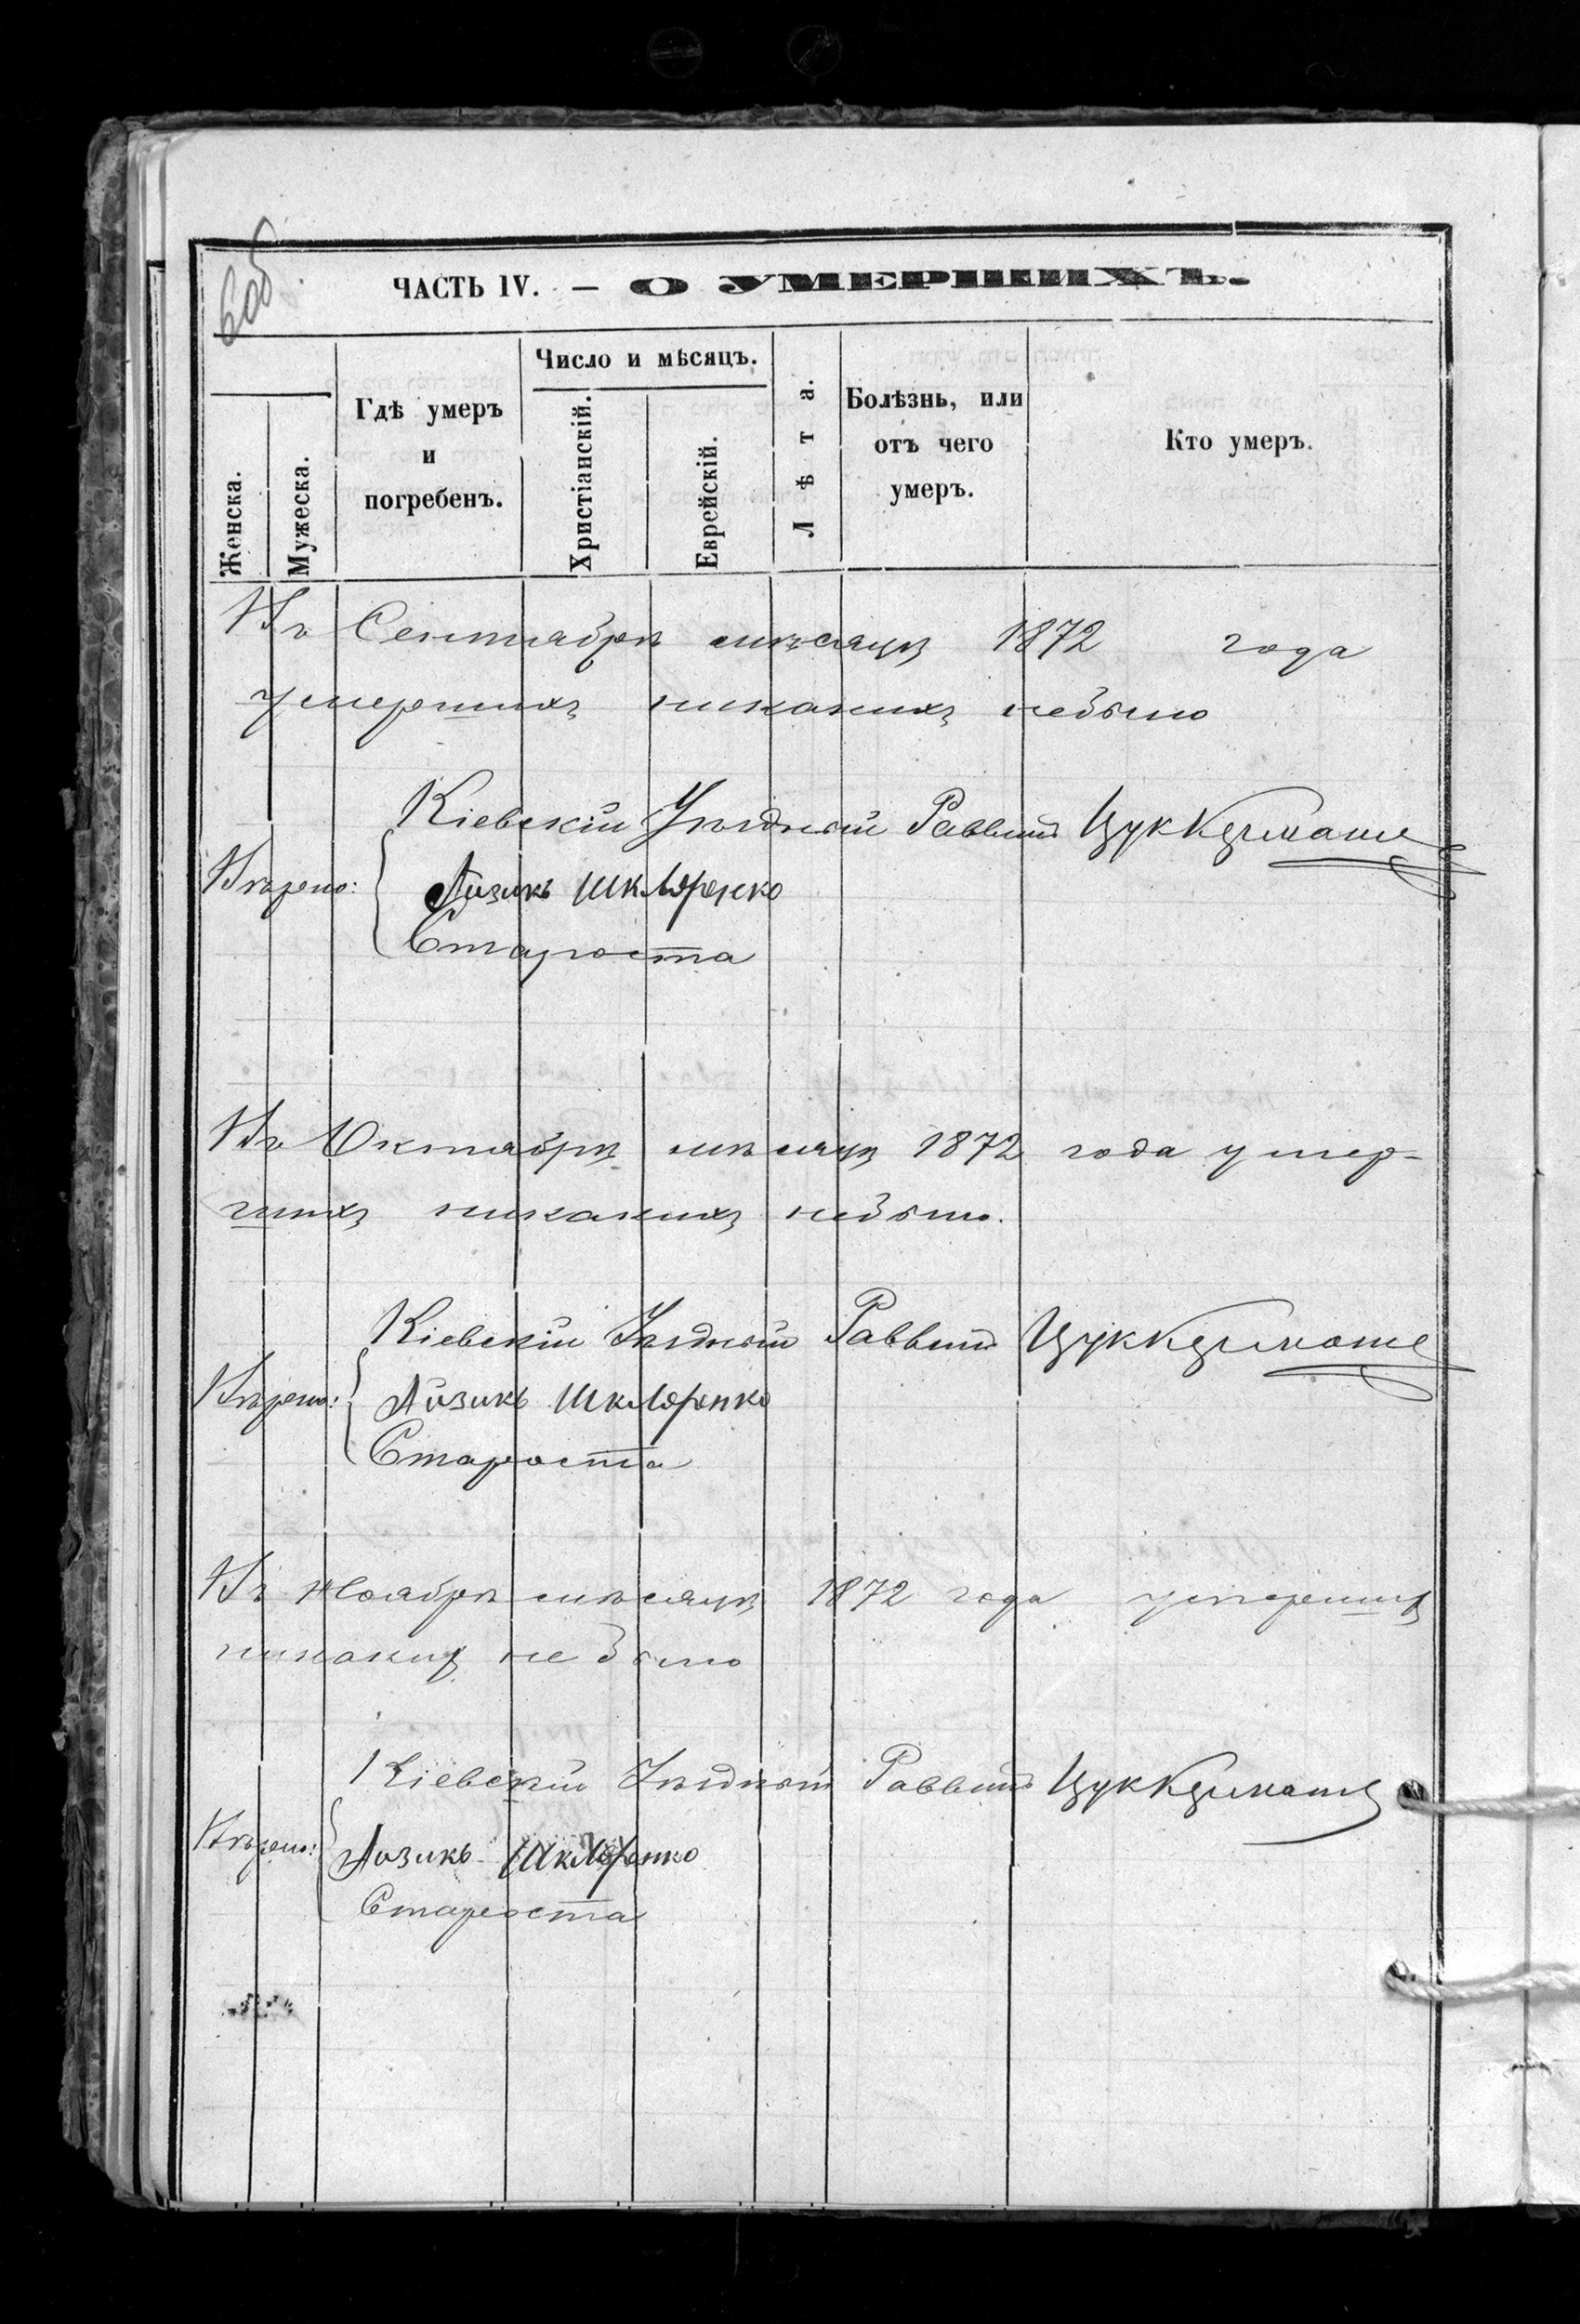 6об
ЧАСТЬ IV. — О УМЕРШИХЪ.
Женска.
Мужеска.
Гдѣ умеръ
и
погребенъ.
Число и мѣсяцъ.
Христіанскій.
Еврейскій.
Лѣта.
Болѣзнь, или
отъ чего
умеръ.
Кто умеръ.
Въ Сентябрѣ мѣсяцѣ 1872 года
умершихъ никакихъ небыло
Кіевскій Уѣздный Раввинъ Цуккерманъ
Вѣрно:
Айзикъ Шкляренко
Староста
Въ Октябрѣ мѣсяцѣ 1872 года умер-
шихъ никакихъ небыло.
Кіевскій Уѣздный Раввинъ Цуккерманъ
Вѣрно:
Айзикъ Шкляренко
Староста
Въ Ноябрѣ мѣсяцѣ 1872 года умершихъ
никакихъ не было
Кіевскій Уѣздный Раввинъ Цуккерманъ
Вѣрно:
Айзикъ Шкляренко
Староста